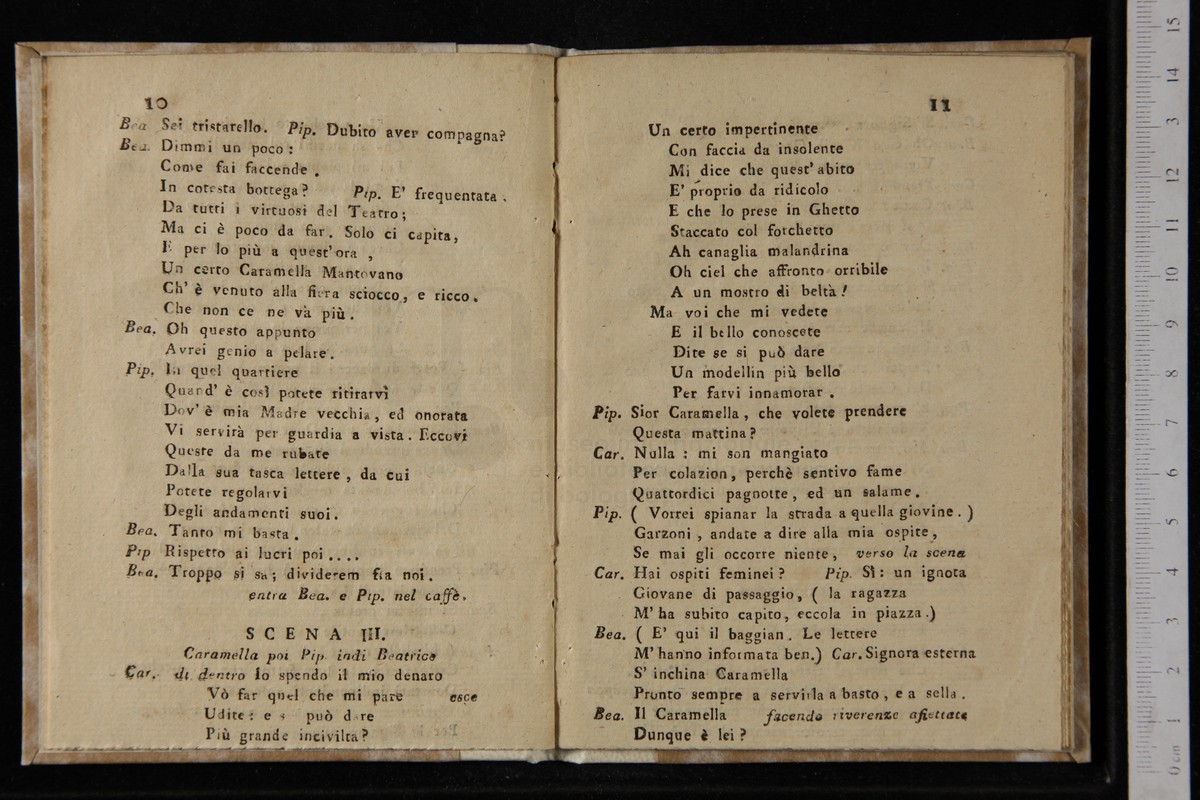 10
Bea Sei tristarello. Pip. Dubito aver compagna?
Bea. Dimmi un poco:
Come fai faccende.
In cotesta bottega? Pip. E' frequentata.
Da tutti i virtuosi del Teatro;
Ma ci è poco da far. Solo ci capita,
E per lo più a quest'ora,
Un certo Caramella Mantovano
Ch'è venuto alla fiera sciocco, e ricco.
Che non ce ne và più.
Bea. Oh questo appunto
Avrei genio a pelare.
Pip. In quel quartiere
Quand' è così potete ritirarvi
Dov' è mia Madre vecchia, ed onorata
Vi servirà per guardia a vista. Eccovi
Queste da me rubate
Dalla sua tasca lettere, da cui
Potete regolarvi
Degli andamenti suoi.
Bea. Tanto mi basta.
Pip Rispetto ai lucri poi....
Bea. Troppo si sa; dividerem fia noi.
entra Bea. e Pip. nel caffè.
SCENA III.
Caramella poi Pip. indi Beatrice
Car. di dentro Io spendo il mio denaro
Vò far quel che mi pare esce
Udite: e s può dare
Più grande inciviltà?
11
Un certo impertinente
Con faccia da insolente
Mi dice che quest' abito
E' proprio da ridicolo
E che lo prese in Ghetto
Staccato col forchetto
Ah canaglia malandrina
Oh ciel che affronto orribile
A un mostro di beltà!
Ma voi che mi vedete
E il bello conoscete
Dite se si può dare
Un modellin più bello
Per farvi innamorar.
Pip. Sior Caramella, che volete prendere
Questa mattina?
Car. Nulla: mi son mangiato
Per colazion, perchè sentivo fame
Quattordici pagnotte, ed un salame.
Pip. (Vorrei spianar la strada a quella giovine.)
Garzoni, andate a dire alla mia ospite,
Se mai gli occorre niente, verso la scena
Car. Hai ospiti feminei? Pip. Sì: un ignota
Giovane di passaggio, (la ragazza
M'ha subito capito, eccola in piazza.)
Bea. (E' qui il baggian. Le lettere
M'hanno informata ben.) Car. Signora esterna
S' inchina Caramella
Pronto sempre a servirla a basto, e a sella.
Bea. Il Caramella facendo riverenze affettate
Dunque è lei?
15
14
13
12
11
10
9
8
7
6
5
4
3
2
1
0 cm